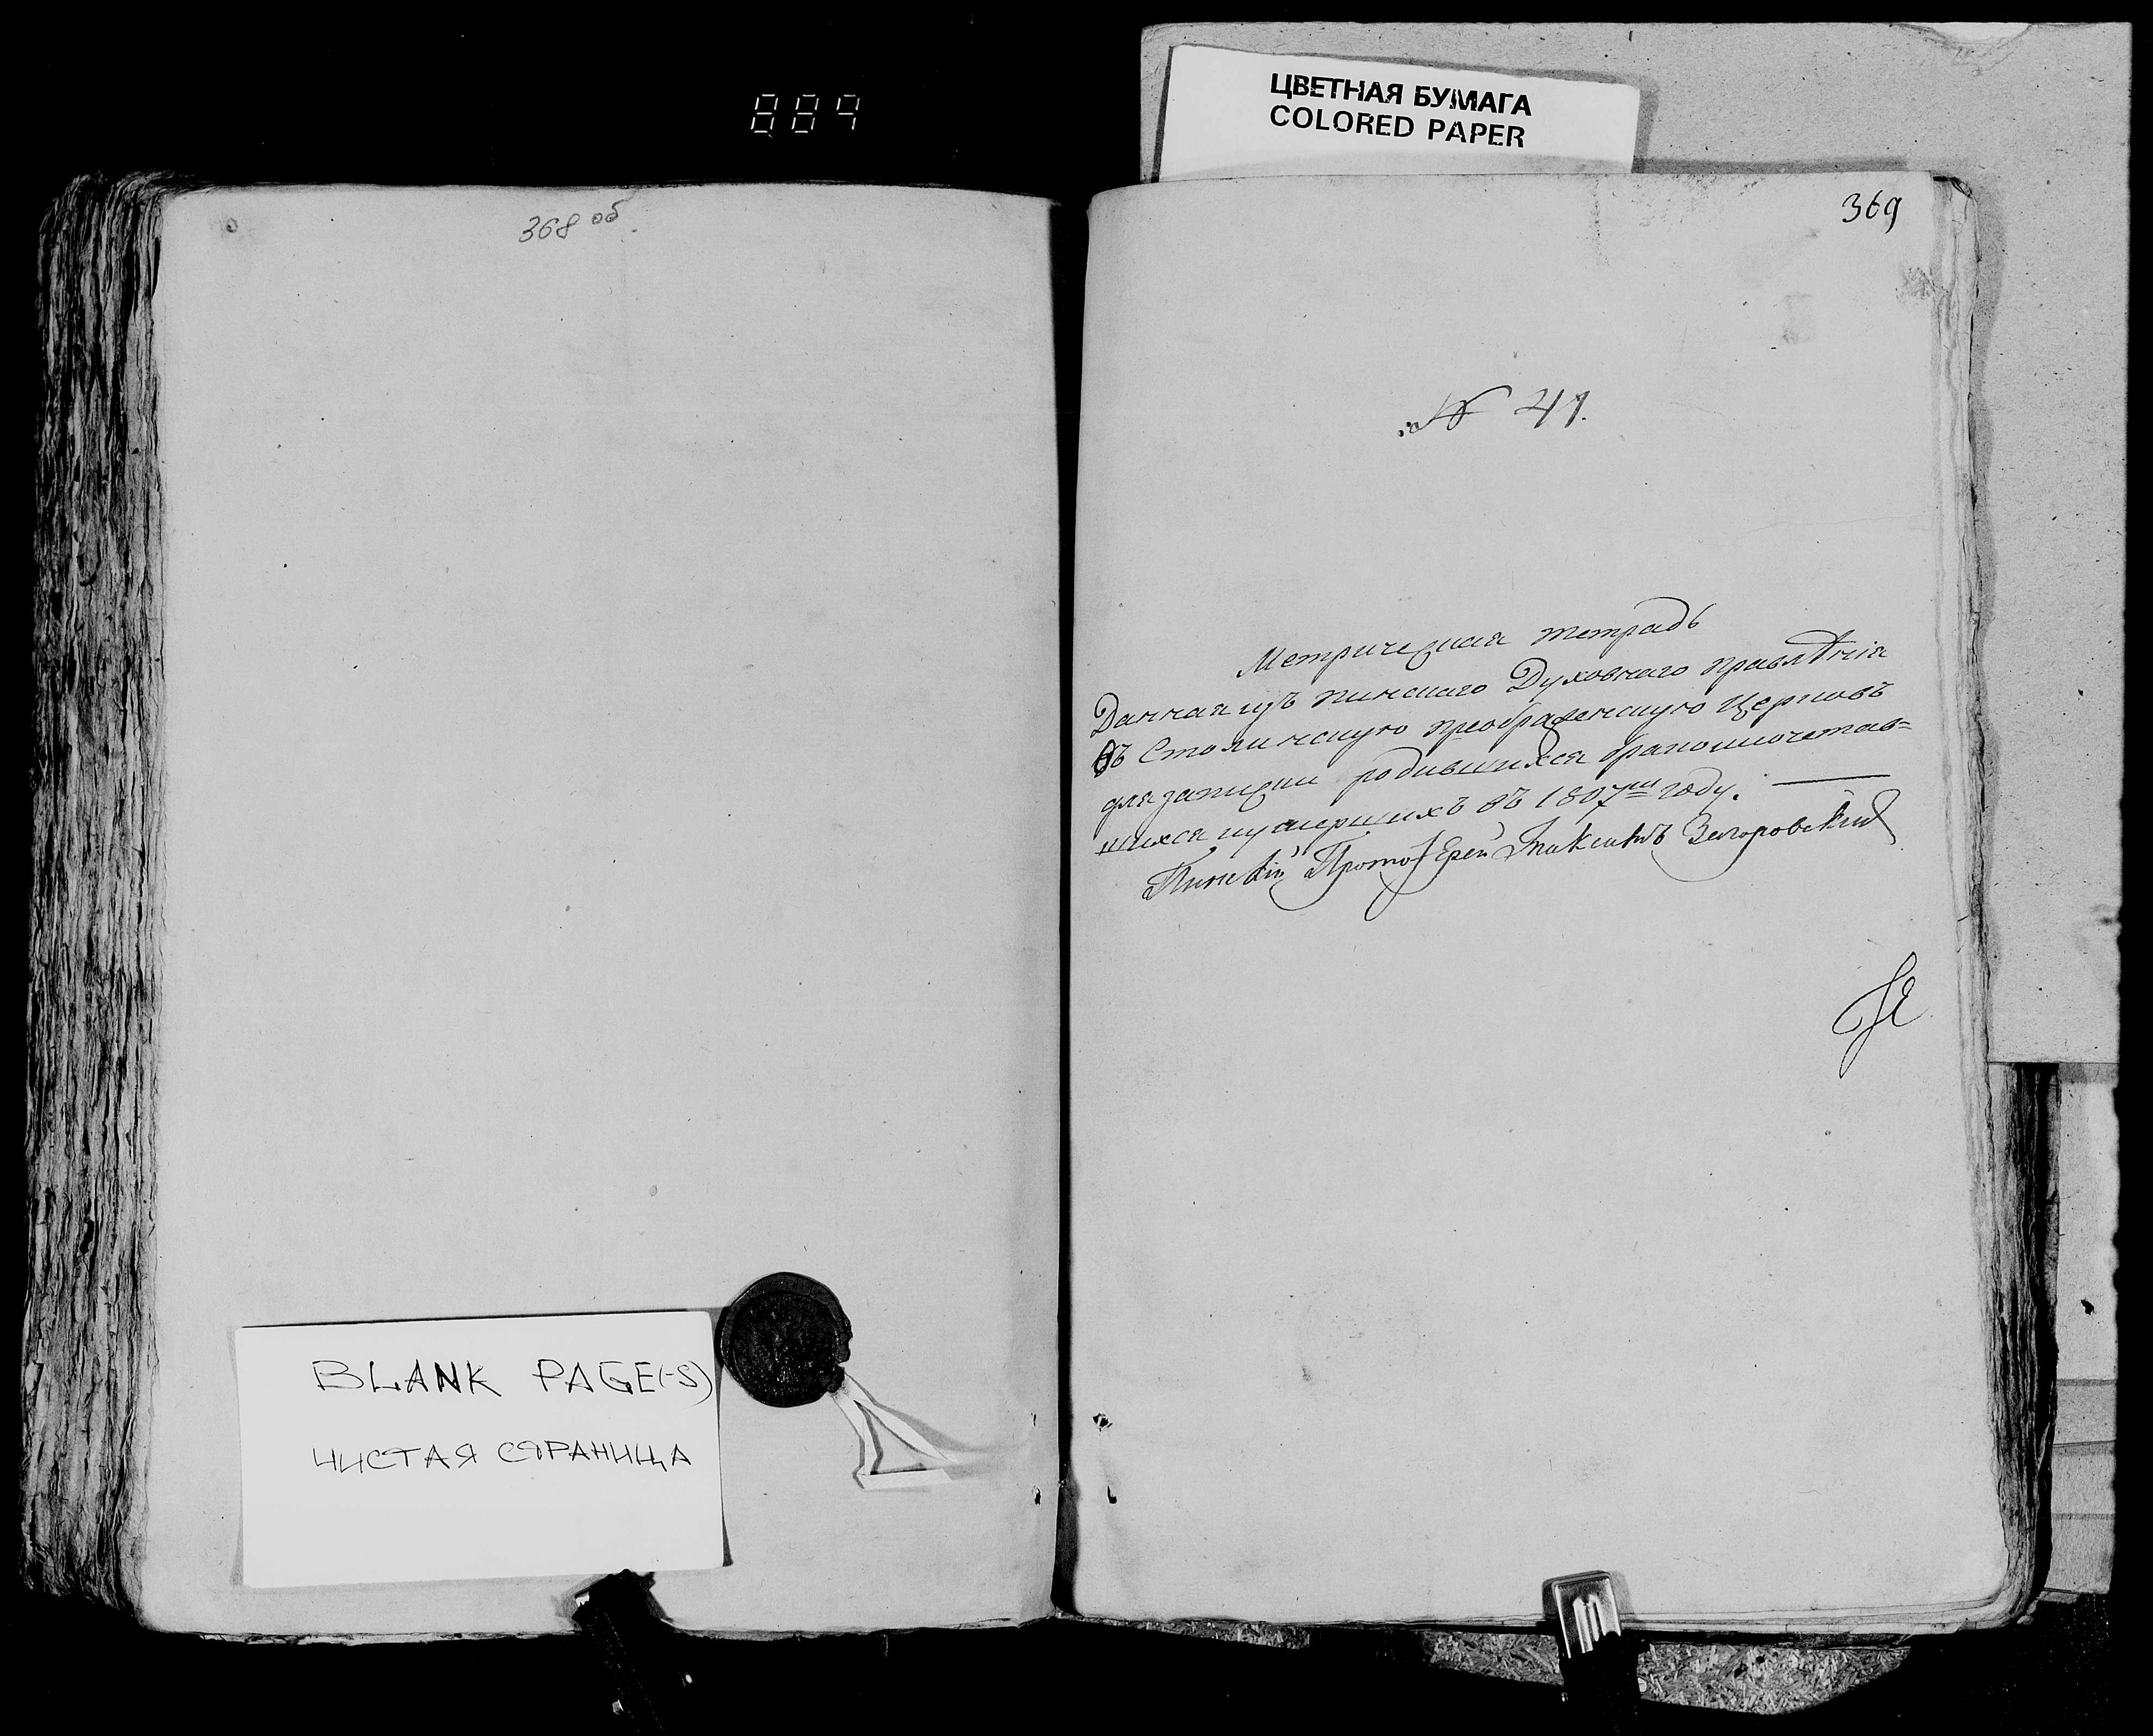 889
ЦВЕТНАЯ БУМАГА
COLORED PAPER
368 об.
BLANK PAGE(-S)
ЧИСТАЯ СТРАНИЦА
369
№ 41.
Метрическая тетрадь
Данная изъ пинскаго Духовнаго правлѣнія
въ Столинскую преображенскую Церковъ
для записки родившихся бракомсочетав=
шихся иумершихъ въ 1807мъ году.
Пинскій ПротоІерей Загоровскій